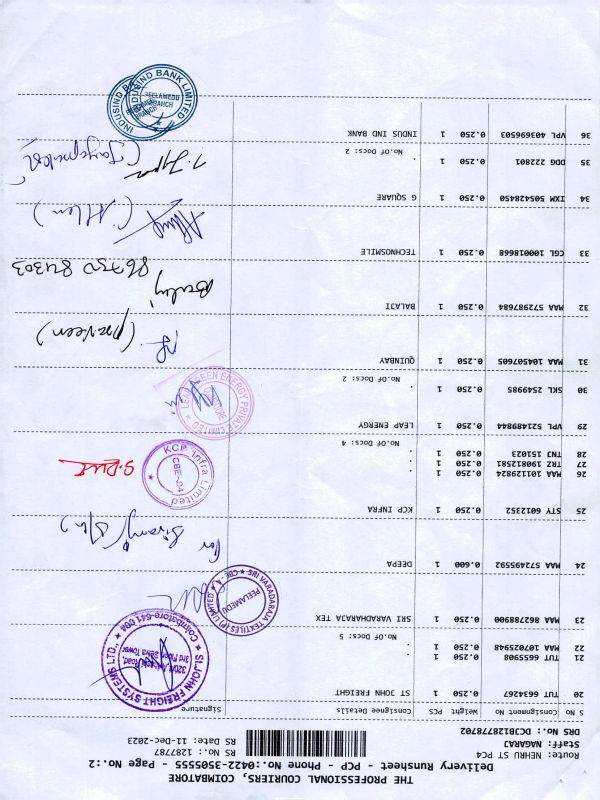 THE PROFESSIONAL COURIERS, COIMBATORE
Delivery Runsheet - PCP - Phone No.:0422-3505555 - Page No.:2
Route: NEHRU ST PC4 RS No.: 1287787
Staff: NAGARAJ RS Date: 11-Dec-2023
DRS No.: DCJB128778702
S No Consignment No Weight PCS Consignee Details Signature
20 TUT 6634267 0.250 1 ST JOHN FREIGHT
21 TUT 6655908 0.250 1 .
22 MAA 107025948 0.250 1 .
No.OF Docs: 5
23 MAA 862788900 0.250 1 SRI VARADHARAJA TEX
24 MAA 572495592 0.600 1 DEEPA
25 STY 6012352 0.250 1 KCP INFRA
26 MAA 101129824 0.250 1 .
27 TRZ 190812581 0.250 1 .
28 TNJ 151023 0.250 1 .
No.OF Docs: 4
29 VPL 521489844 0.250 1 LEAP ENERGY
30 SKL 2549985 0.250 1 .
No.OF Docs: 2
31 MAA 104507605 0.250 1 QUINBAY
32 MAA 572987684 0.250 1 BALAJI
33 CGL 100018668 0.250 1 TECHNOSMILE
34 IXM 505428450 0.250 1 G SQUARE
35 DDG 222801 0.250 1 .
No.OF Docs: 2
36 VPL 403696503 0.250 1 INDUS IND BANK
ST.JOHN FREIGHT SYSTEMS LTD.,
3rd Floor,
Coimbatore-641
SRI VARADARAJA TEXTILES (P) LIMITED
PEELAMEDU
KCP Infra Limited
CBE-04
GREEN ENERGY PRIVATE LIMITED
(praveen)
Balaji
86750 84303
(Allen)
(Jayaprakash
INDUSIND BANK LIMITED
PEELAMEDU
BRANCH